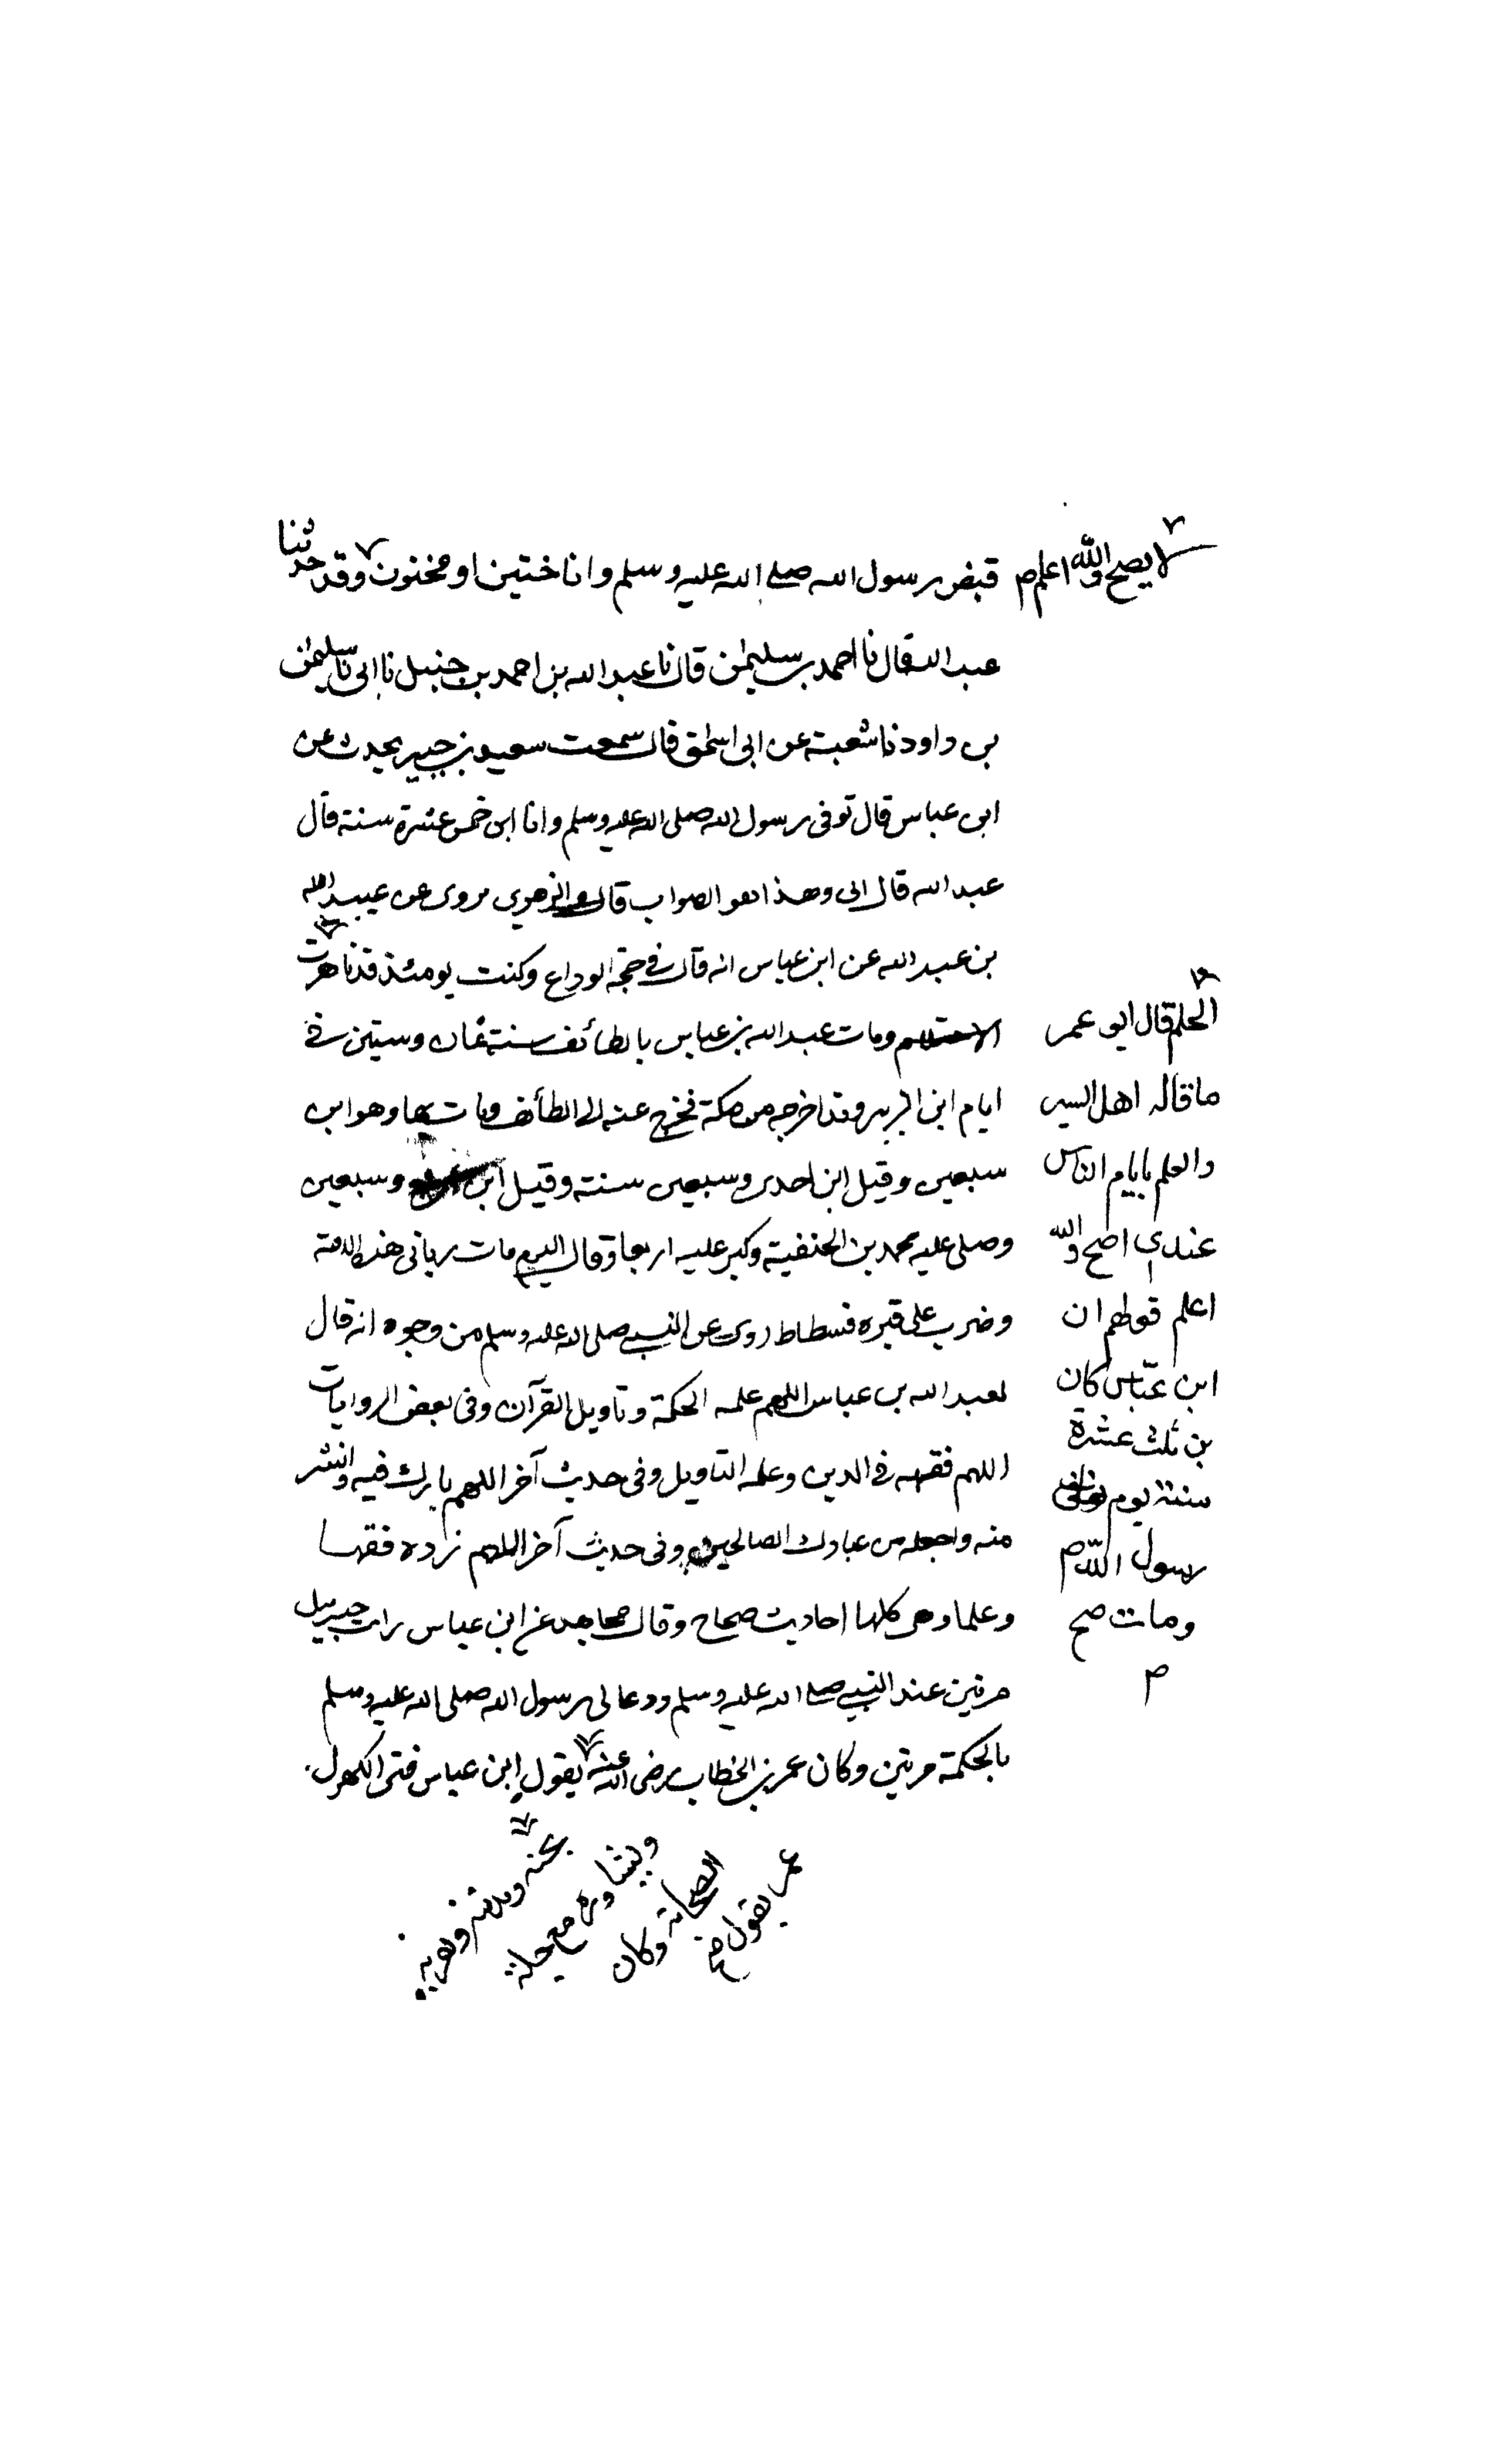 قبض رسول الله صلى الله عليه وسلم وانا ختين او مختون وقد حدثنا
لا يصح والله اعلم م
عبد الله قال نا احمد بن سليمٰن قال نا عبد الله بن احمد بن حنبل نا ابى نا سليمٰن
بن داود نا شعبة عن ابى اسحٰق قال سمعت سعيد بن جبير يحدث عن
ابن عباس قال توفى رسول الله صلى الله عليه وسلم وانا ابن خمس عشرة سنة قال
عبد الله قال ابى وهذا هو الصواب قال والزهرى يروى عن عبيد الله
بن عبد الله عن ابن عباس انه قال فى حجة الوداع وكنت يومئذ قد ناهزت
الاحتلام ومات عبد الله بن عباس بالطائف سنة ثمان وستين فى
ايام ابن الزبير وقد اخرجه من مكة فخرج عنه الى الطائف ومات بها وهو ابن
سبعين وقيل ابن احدى وسبعين سنة وقيل ابن وسبعين
وصلى عليه محمد بن الحنفية وكبر عليه اربعا وقال اليوم مات ربانى هذه الامة
وضرب على قبره فسطاط روى عن النبى صلى الله عليه وسلم من وجوه انه قال
لعبد الله بن عباس اللهم علمه الحكمة وتاويل القرآن وفى بعض الروايات
اللهم فقهه فى الدين وعلمه التاويل وفى حديث آخر اللهم بارك فيه وانشر
منه واجعله من عبادك الصالحين وفى حديث آخر اللهم زده فقها
وعلما وهى كلها احاديث صحاح وقال مجاهد عن ابن عباس رايت جبريل
مرتين عند النبى صلى الله عليه وسلم ودعا لى رسول الله صلى الله عليه وسلم
بالحكمة مرتين وكان عمر بن الخطاب رضى الله عنه يقول ابن عباس فتى الكهول
الحلم قال ابو عمر
ما قاله اهل السير
والعلم بايام الناس
عندى اصح والله
اعلم قولهم ان
ابن عبّاس كان
بن ثلث عشرة
سنة يوم توفى
رسول اللّه م
ومات صح
م
يحبه ويدنيه ويقربه
ويشاوره مع جلة
الصحابة وكان
عمر يقول